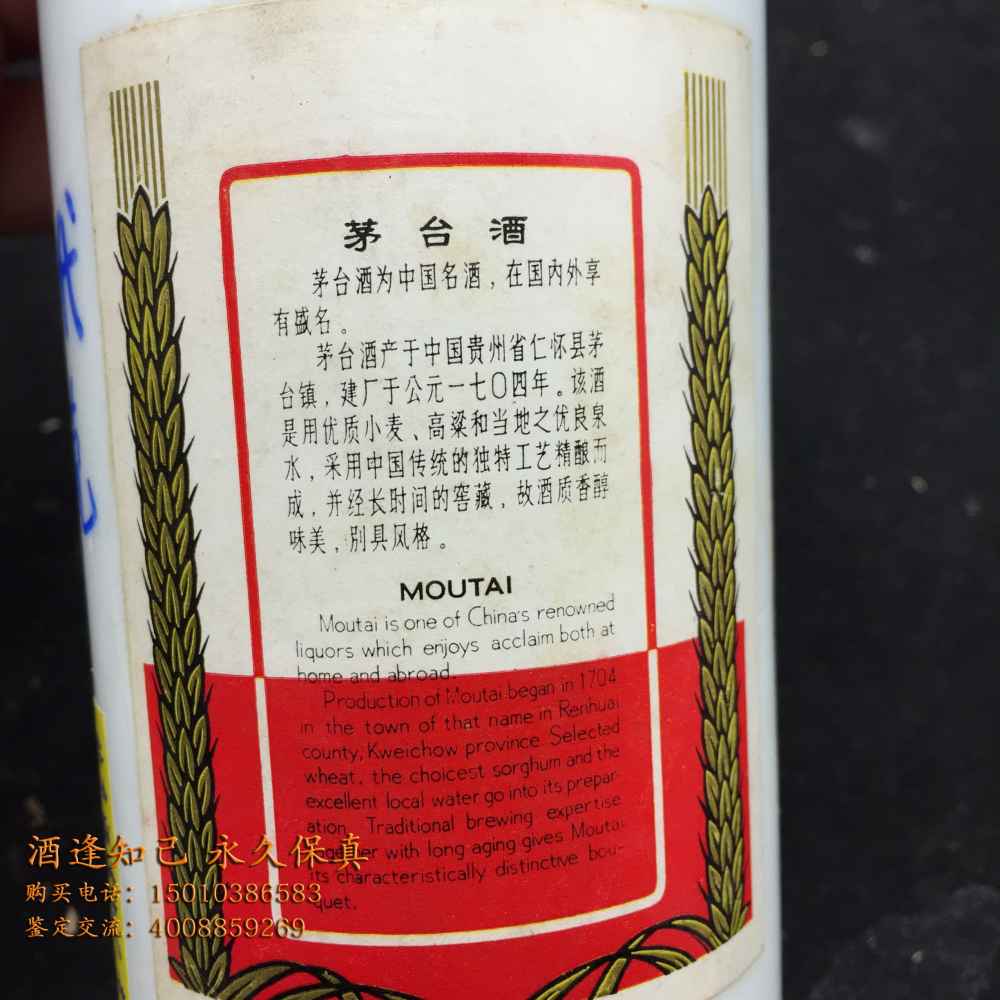 茅台酒
茅台酒为中国名酒，在国内外享
有盛名。
茅台酒产于中国贵州省仁怀县茅
台镇，建厂于公元一七〇四年。该酒
是用优质小麦、高粱和当地之优良泉
水，采用中国传统的独特工艺精酿而
成，并经长时间的窖藏，故酒质香醇
味美，别具风格。
MOUTAI
Moutai is one of China's renowned
liquors which enjoys acclaim both at
home and abroad.
Production of Moutai began in 1704
in the town of that name in Renhuai
county, Kweichow province. Selected
wheat, the choicest sorghum and the
excellent local water go into its prepar-
ation. Traditional brewing expertise
together with long aging gives Moutai
its characteristically distinctive bou-
quet.
酒逢知己 永久保真
购买电话：15010386583
鉴定交流：4008859269